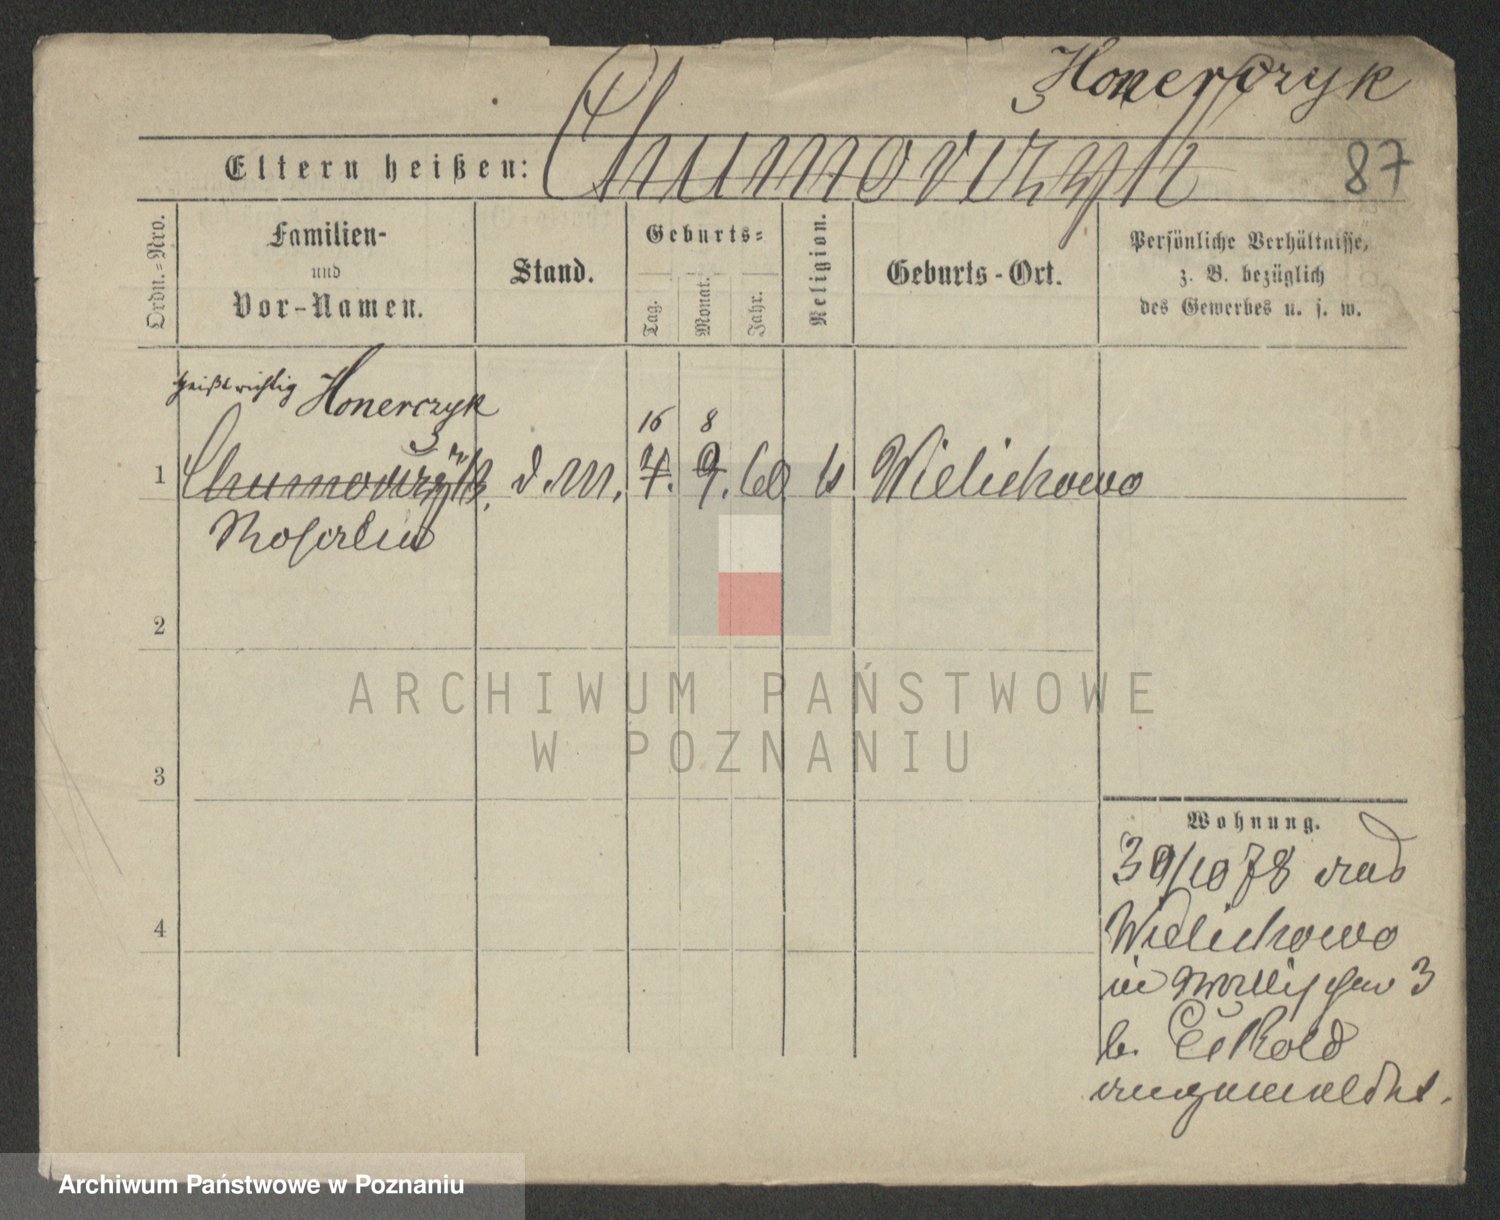 Honerczyk
Eltern heißen: Chumovczyk
87
Ordn.=Nro.
Familien-
und
Vor-Namen.
Stand.
Geburts=
Tag.
Monat.
Jahr.
Religion.
Geburts-Ort.
Persönliche Verhältnisse,
z. B. bezüglich
des Gewerbes u. s. w.
heißt richtig Honerczyk
16 8
1 d. M. 7. 9. 60 k Wielichowo
Rosalie
2
3
4
Wohnung.
30/10 78 aus
Wielichowo
in Wallischei 3
b.
angemeldet.
ARCHIWUM PAŃSTWOWE
W POZNANIU
Archiwum Państwowe w Poznaniu